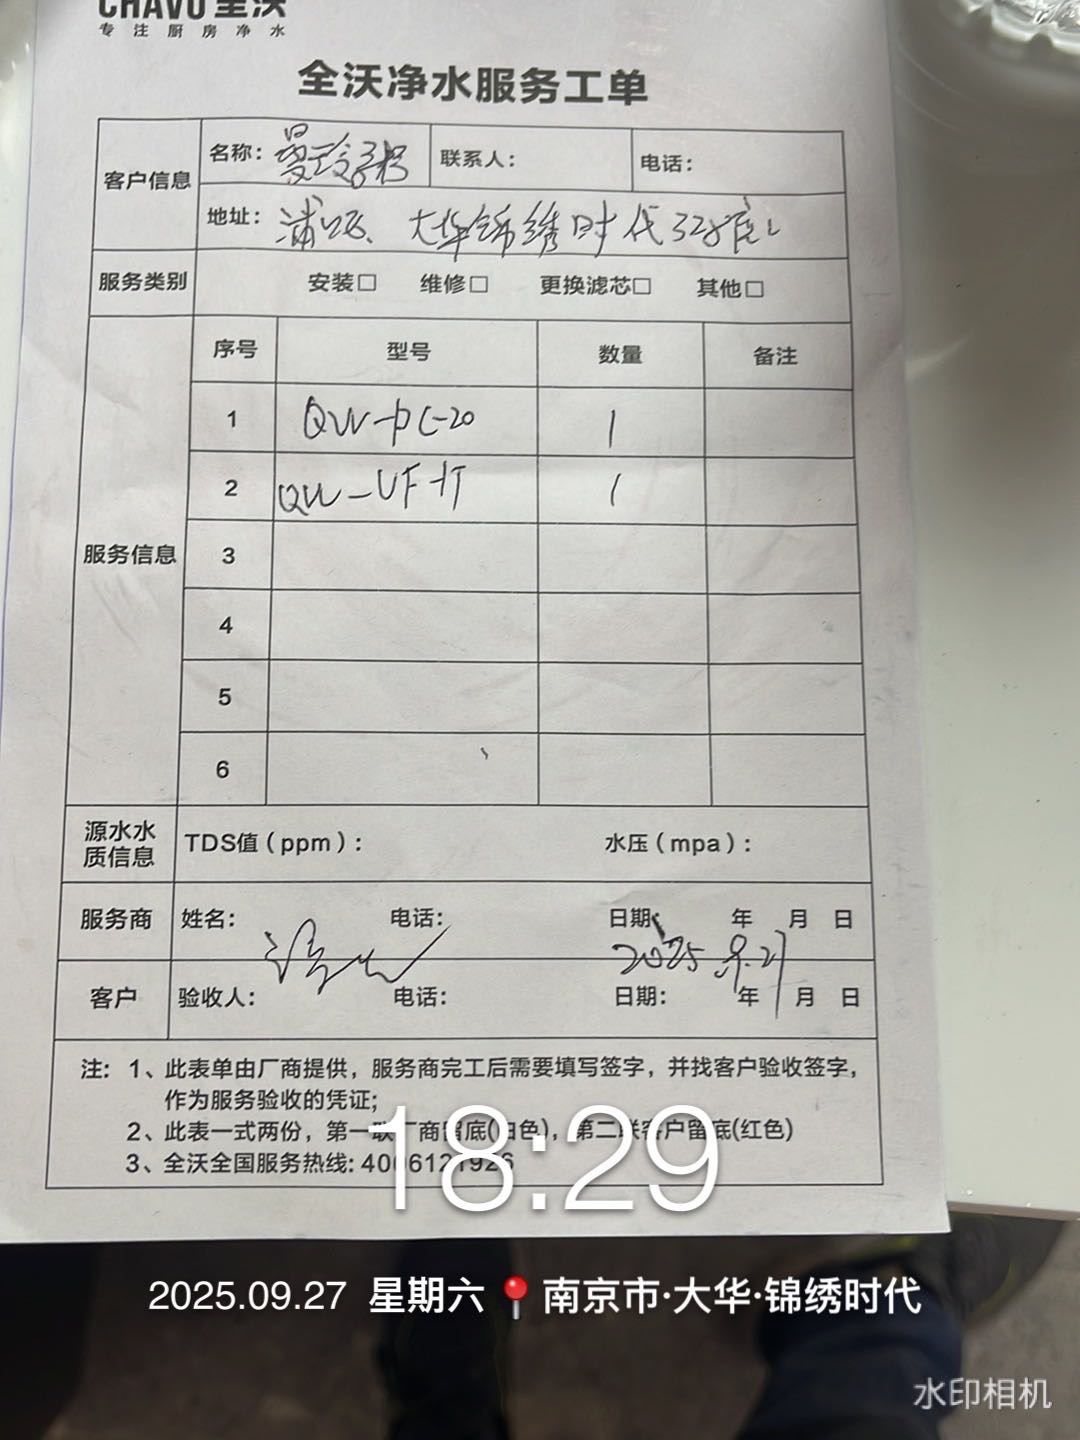 CHAVO 全沃
专注厨房净水
全沃净水服务工单
客户信息 名称: 曼玲粥 联系人: 电话:
地址: 浦口区、大华锦绣时代
服务类别 安装□ 维修□ 更换滤芯□ 其他□
服务信息 序号 型号 数量 备注
1 QW-PC-20 1
2 QW-UF-1T 1
3
4
5
6
源水水质信息 TDS值(ppm): 水压(mpa):
服务商 姓名: 电话: 日期: 年 月 日
2025.9.27
客户 验收人: 电话: 日期: 年 月 日
注: 1、此表单由厂商提供，服务商完工后需要填写签字，并找客户验收签字，
作为服务验收的凭证;
2、此表一式两份，第一联厂商留底(白色)，第二联客户留底(红色)
3、全沃全国服务热线: 4006121926
18:29
2025.09.27 星期六 南京市·大华·锦绣时代
水印相机